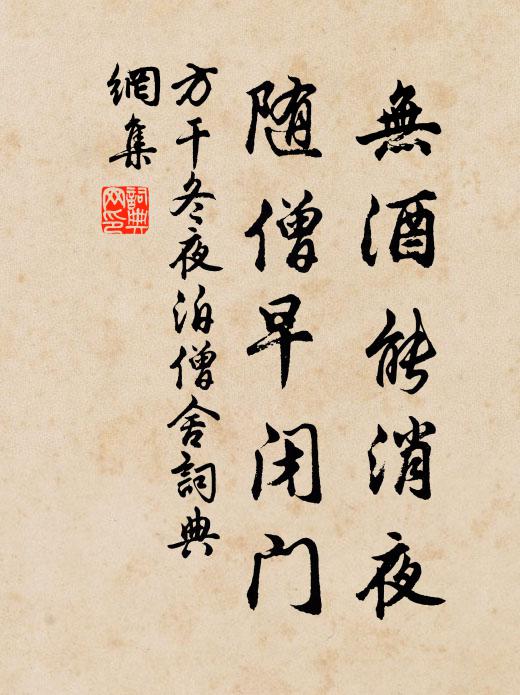 無酒能消夜
随僧早闭门
方干冬夜泊僧舍詞典
網集
詞典网印